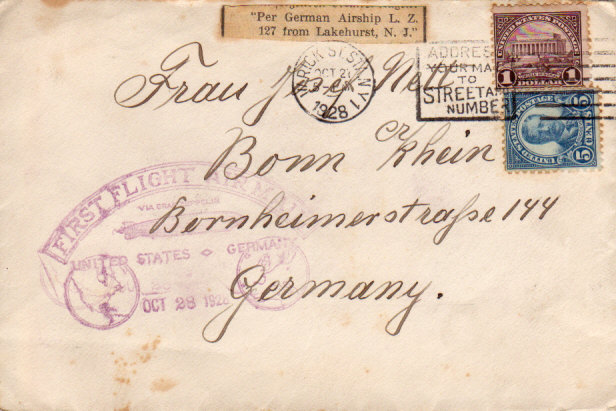 "Per German Airship L. Z.
127 from Lakehurst, N. J."
UNITED STATES POSTAGE
1 1
DOLLAR
VARICK ST. STA. N.Y. 1
OCT 2
1928
ADDRESS
YOUR MA
TO
STREET A
NUMBE
UNITED STATES POSTAGE
5 CENTS 5
Frau Josef
Bonn a/Rhein
Bornheimerstraße 144
Germany.
FIRST FLIGHT AIR MAIL
VIA GRAF ZEPPELIN
UNITED STATES GERMANY
OCT 28 1928